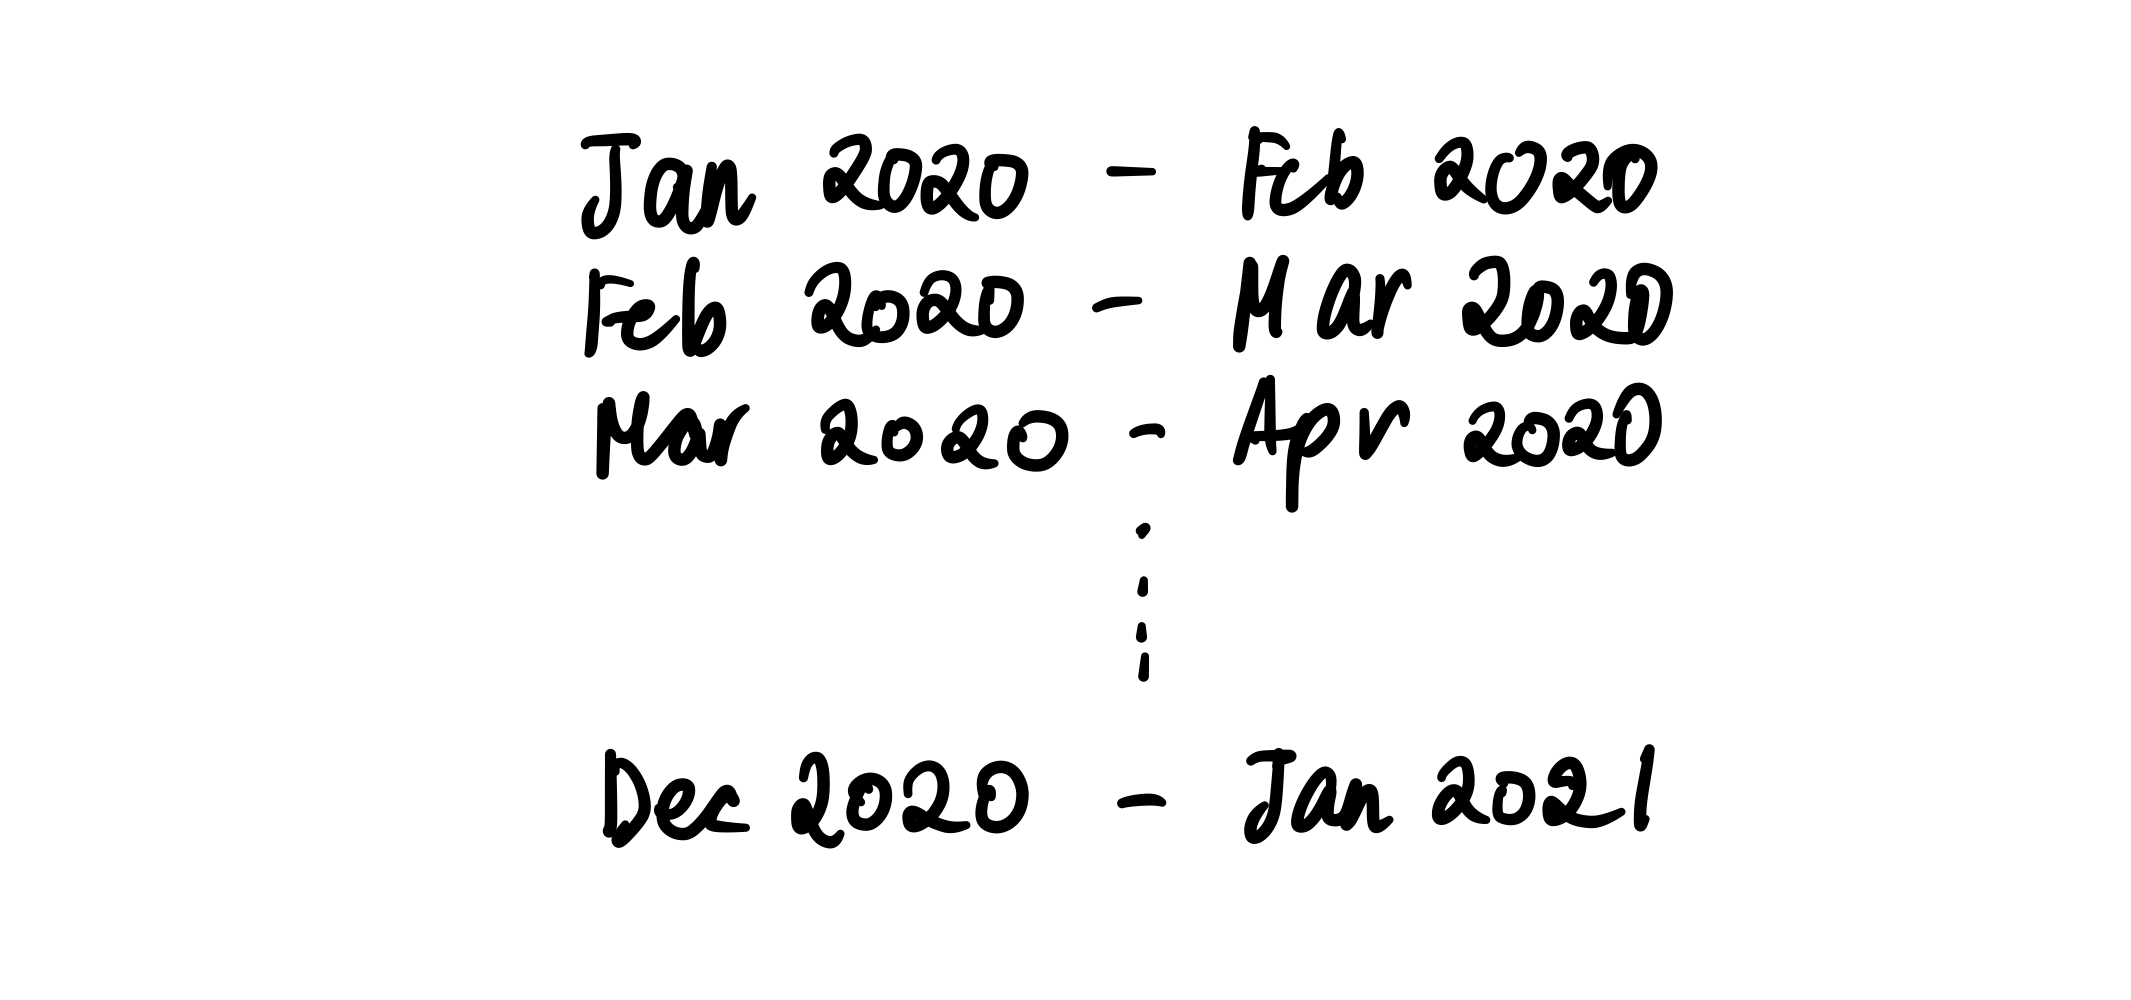 Jan 2020 - Feb 2020
Feb 2020 - Mar 2020
Mar 2020 - Apr 2020
Dec 2020 - Jan 2021